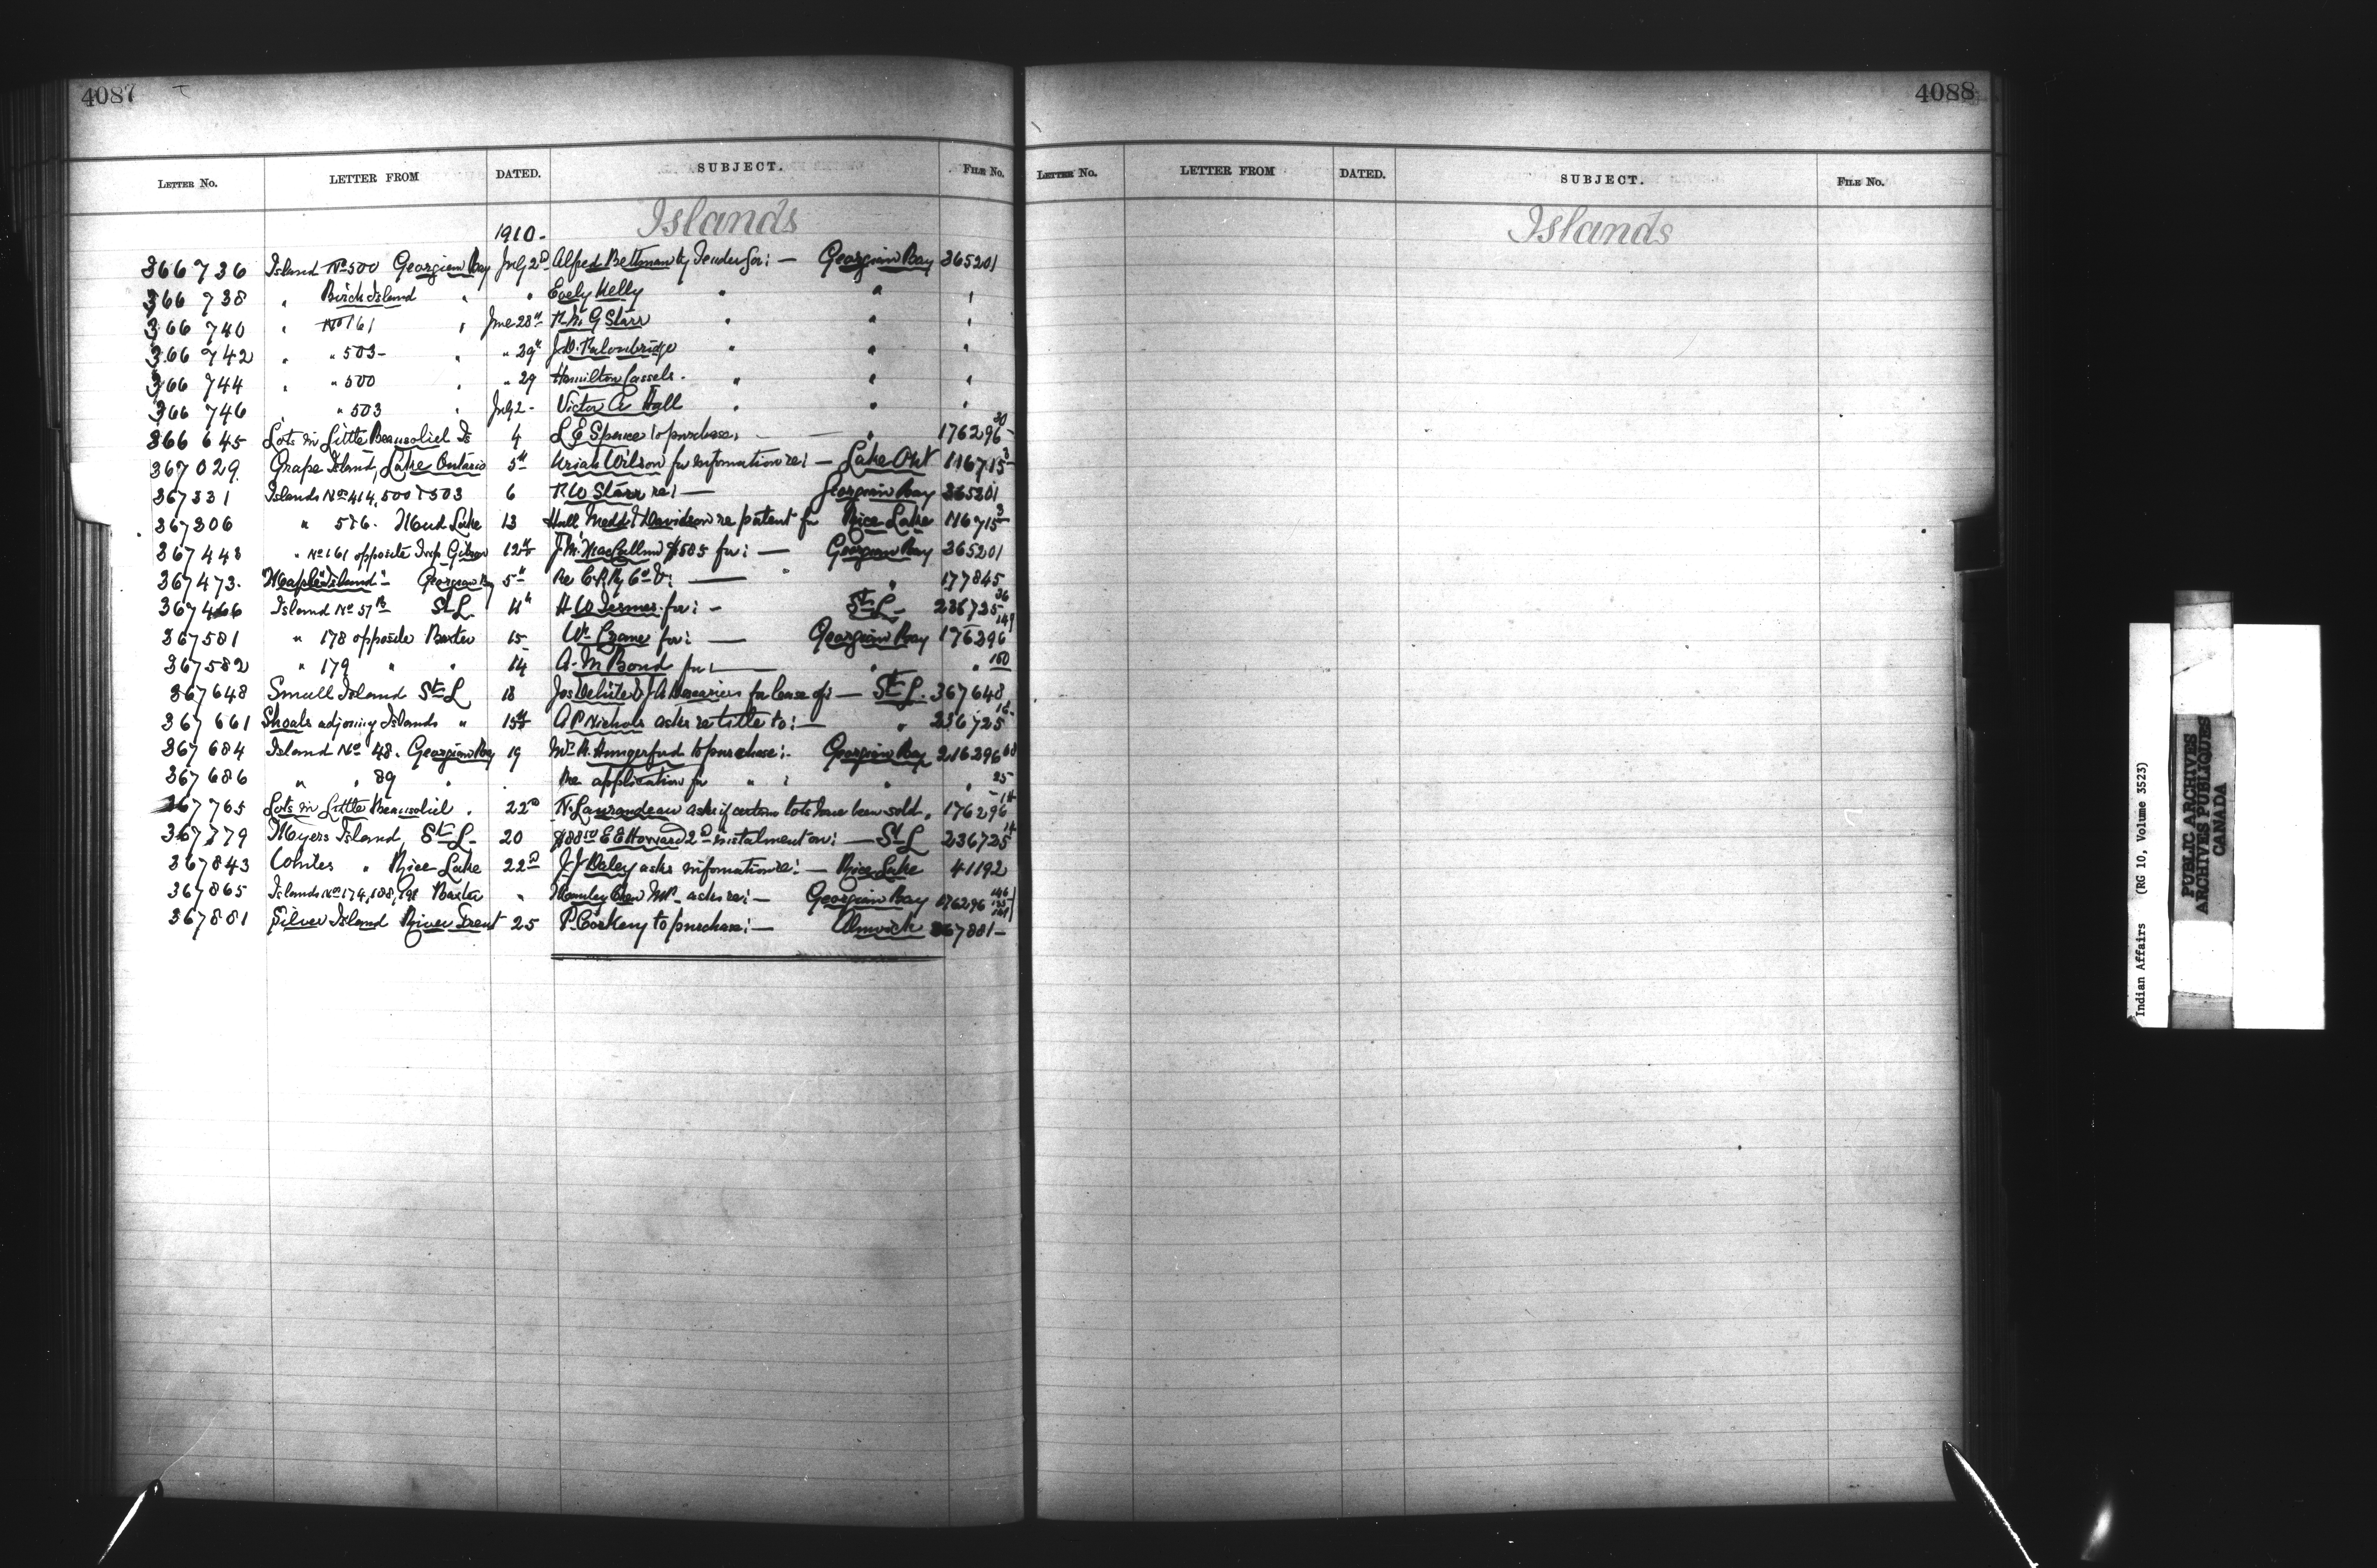 4087
LETTER NO. LETTER FROM DATED. SUBJECT. FILE NO.
Islands
1910-
366736 Island No 500 Georgian Bay July 2d Alfred Bettman Ky Tender for:— Georgian Bay 365201
366738 " Birch Island " " Evely Kelly " " "
366740 " No 161 " June 28th R.M.G Starr " " "
366742 " " 503- " " 29th J.D. Falconbridge " " "
366744 " " 500 " " 29 Hamilton Cassels. " " "
366746 " 503 " July 2- Victor A Hall " " "
366645 Lots in Little Beausoliel Is 4 L E Spence to purchase, — " 176296-30
367029 Grape Island, Lake Ontario 5th Uriah Wilson for information re:— Lake Ont 116715-3
367331 Islands Nos 414, 500 & 503 6 R W Starr re:— Georgian Bay 365201
367306 " 5 & 6. Mud Lake 13 Hall Medd & Davidson re patent for Rice Lake 116715-3
367443 " No 161 opposite Twp Gibson 12th J.M. MacCallum $585 for:— Georgian Bay 365201
367473. "Maple Island"- Georgian Bay 5th Re C.P. Ry Co — " 177845
367466 Island No 57B St L 11th H W for:— St L- 236725-36
367581 " 178 opposite Baxter 15 Wm Crane for:— Georgian Bay 176296-149
367582 " 179 " " 14 A. M Bond for:— " " 150
367648 Small Island St L 18 for lease of:— St L. 367648
367661 Shoals adjoining Islands " 15th A P Nichols asks re title to:— " 236725-16-
367684 Island No 48. Georgian Bay 19 Wm H. Hungerford to purchase:- Georgian Bay 216296-68
367686 " " 89 " " Re application for " : " " 25-
367765 Lots in Little Beausoliel. 22d N. Laurandeau asks if certain lots have been sold. " 176296-14
367779 Myers Island, St L- 20 $88 50 E E Howard 2d instalment on:— St L 236725-14
367843 Whites " Rice Lake 22d J J Daley asks information re:— Rice Lake 41192
367865 Islands No 174, 188, 198 Baxter " Manley Chew M.P. asks re:— Georgian Bay 176296
367881 Silver Island River Trent 25 P. Corkery to purchase:— Alnwick 367881-
4088
LETTER NO. LETTER FROM DATED. SUBJECT. FILE NO.
Islands
Indian Affairs (RG 10, Volume 3523)
PUBLIC ARCHIVES
ARCHIVES PUBLIQUES
CANADA